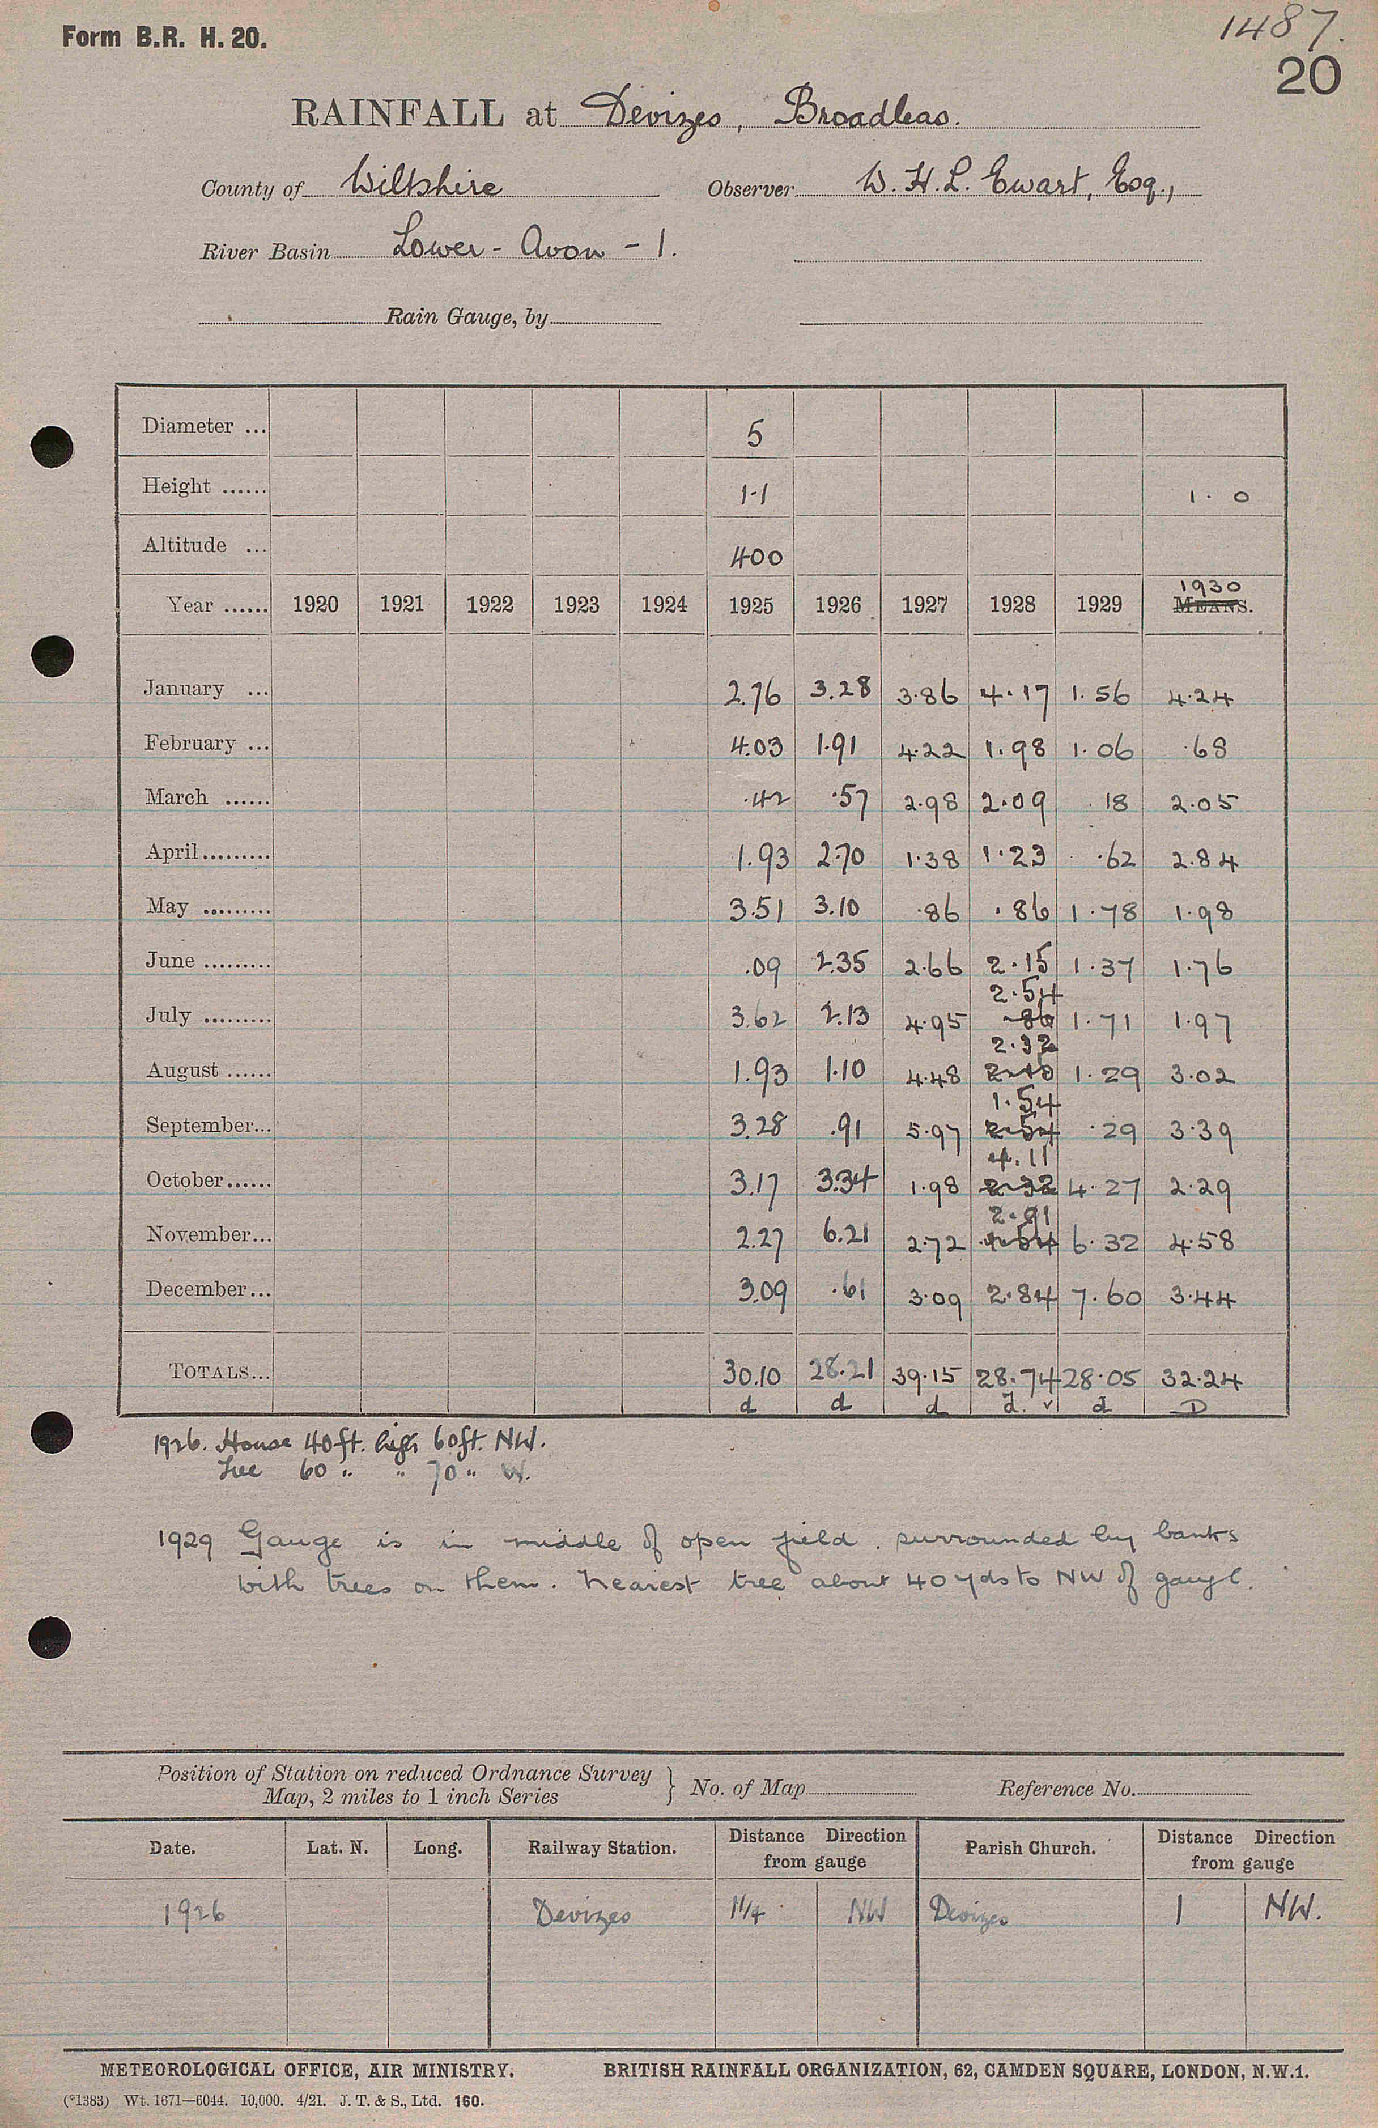 Form B.R. H. 20.
1487.
20
RAINFALL at Devizes, Broadleas.
County of Wiltshire Observer W. H. L. Ewart, Esq.,
River Basin Lower - Avon - 1.
Rain Gauge, by
Diameter ... 5
Height ...... 1.1 1. 0
Altitude ... 400
1930
Year ...... 1920 1921 1922 1923 1924 1925 1926 1927 1928 1929 MEANS.
January ... 2.76 3.28 3.86 4.17 1.56 4.24
February ... 4.03 1.91 4.22 1.98 1.06 .68
March ...... .42 .57 2.98 2.09 18 2.05
April......... 1.93 2.70 1.38 1.23 .62 2.84
May ......... 3.51 3.10 .86 .86 1.78 1.98
June ......... .09 2.35 2.66 2.15 1.37 1.76
2.54
July ......... 3.62 2.13 4.95 .86 1.71 1.97
2.32
August ...... 1.93 1.10 4.48 1.29 3.02
1.54
September... 3.28 .91 5.97 2.54 .29 3.39
4.11
October...... 3.17 3.34 1.98 2.32 4.27 2.29
2.91
November... 2.27 6.21 2.72 1.54 6.32 4.58
December... 3.09 .61 3.09 2.84 7.60 3.44
TOTALS... 30.10 28.21 39.15 28.74 28.05 32.24
d d d d. ✓ d D
1926. House 40ft. high 60ft. NW.
Tree 60 " " 70 " W.
1929 Gauge is in middle of open field. surrounded by banks
with trees on them. Nearest tree about 40 yds to NW of gauge.
Position of Station on reduced Ordnance Survey
Map, 2 miles to 1 inch Series } No. of Map Reference No.
Date. Lat. N. Long. Railway Station. Distance Direction from gauge Parish Church. Distance Direction from gauge
1926 Devizes 1¼ NW Devizes 1 NW.
METEOROLOGICAL OFFICE, AIR MINISTRY. BRITISH RAINFALL ORGANIZATION, 62, CAMDEN SQUARE, LONDON, N.W.1.
(*1383) Wt. 1671—6044. 10,000. 4/21. J. T. & S., Ltd. 160.